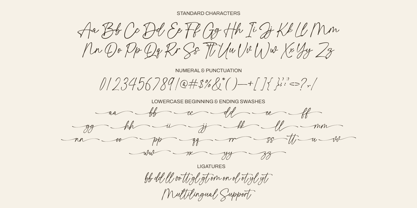 STANDARD CHARACTERS
Aa Bb Cc Dd Ee Ff Gg Hh Ii Jj Kk Ll Mm
Nn Oo Pp Qq Rr Ss Tt Uu Vv Ww Xx Yy Zz
NUMERAL & PUNCTUATION
LOWERCASE BEGINNING & ENDING SWASHES
aa bb cc dd ee ff
gg hh ii jj kk ll mm
nn oo pp qq rr ss tt uu vv
ww xx yy zz
LIGATURES
Multilingual Support